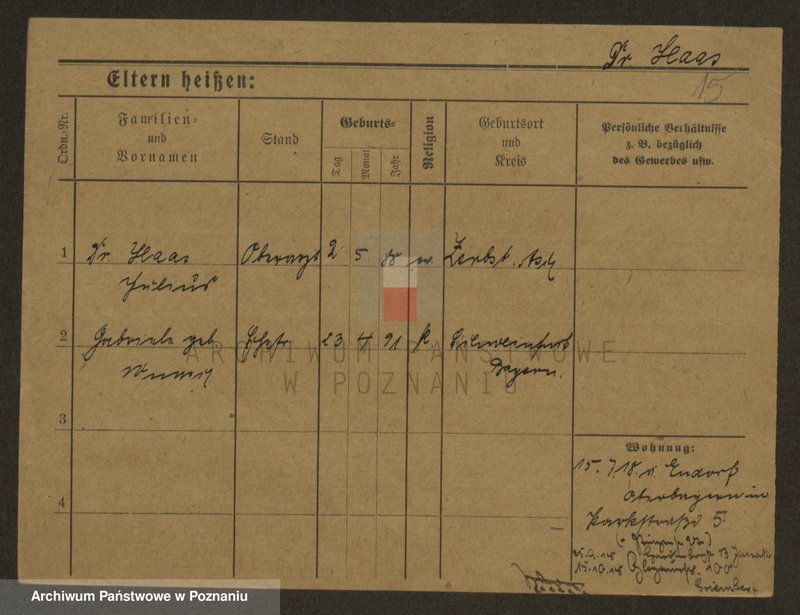 Dr. Haas
15
Eltern heißen:
Ordn.-Nr.
Familien-
und
Vornamen
Stand
Geburts-
Tag
Monat
Jahr
Religion
Geburtsort
und
Kreis
Persönliche Verhältnisse
z. B. bezüglich
des Gewerbes usw.
1 Dr. Haas Oberarzt 2 5 ev. Zerbst
Julius
2 Gabriele geb Ehefr. 23 4 91 k Schweinfurt
Bayern.
ARCHIWUM PAŃSTWOWE
W POZNANIU
3
4
Wohnung:
15. 7. 18. v. Endorf
Oberbayern in
Parkstraße 5
15.10.18 100
Archiwum Państwowe w Poznaniu